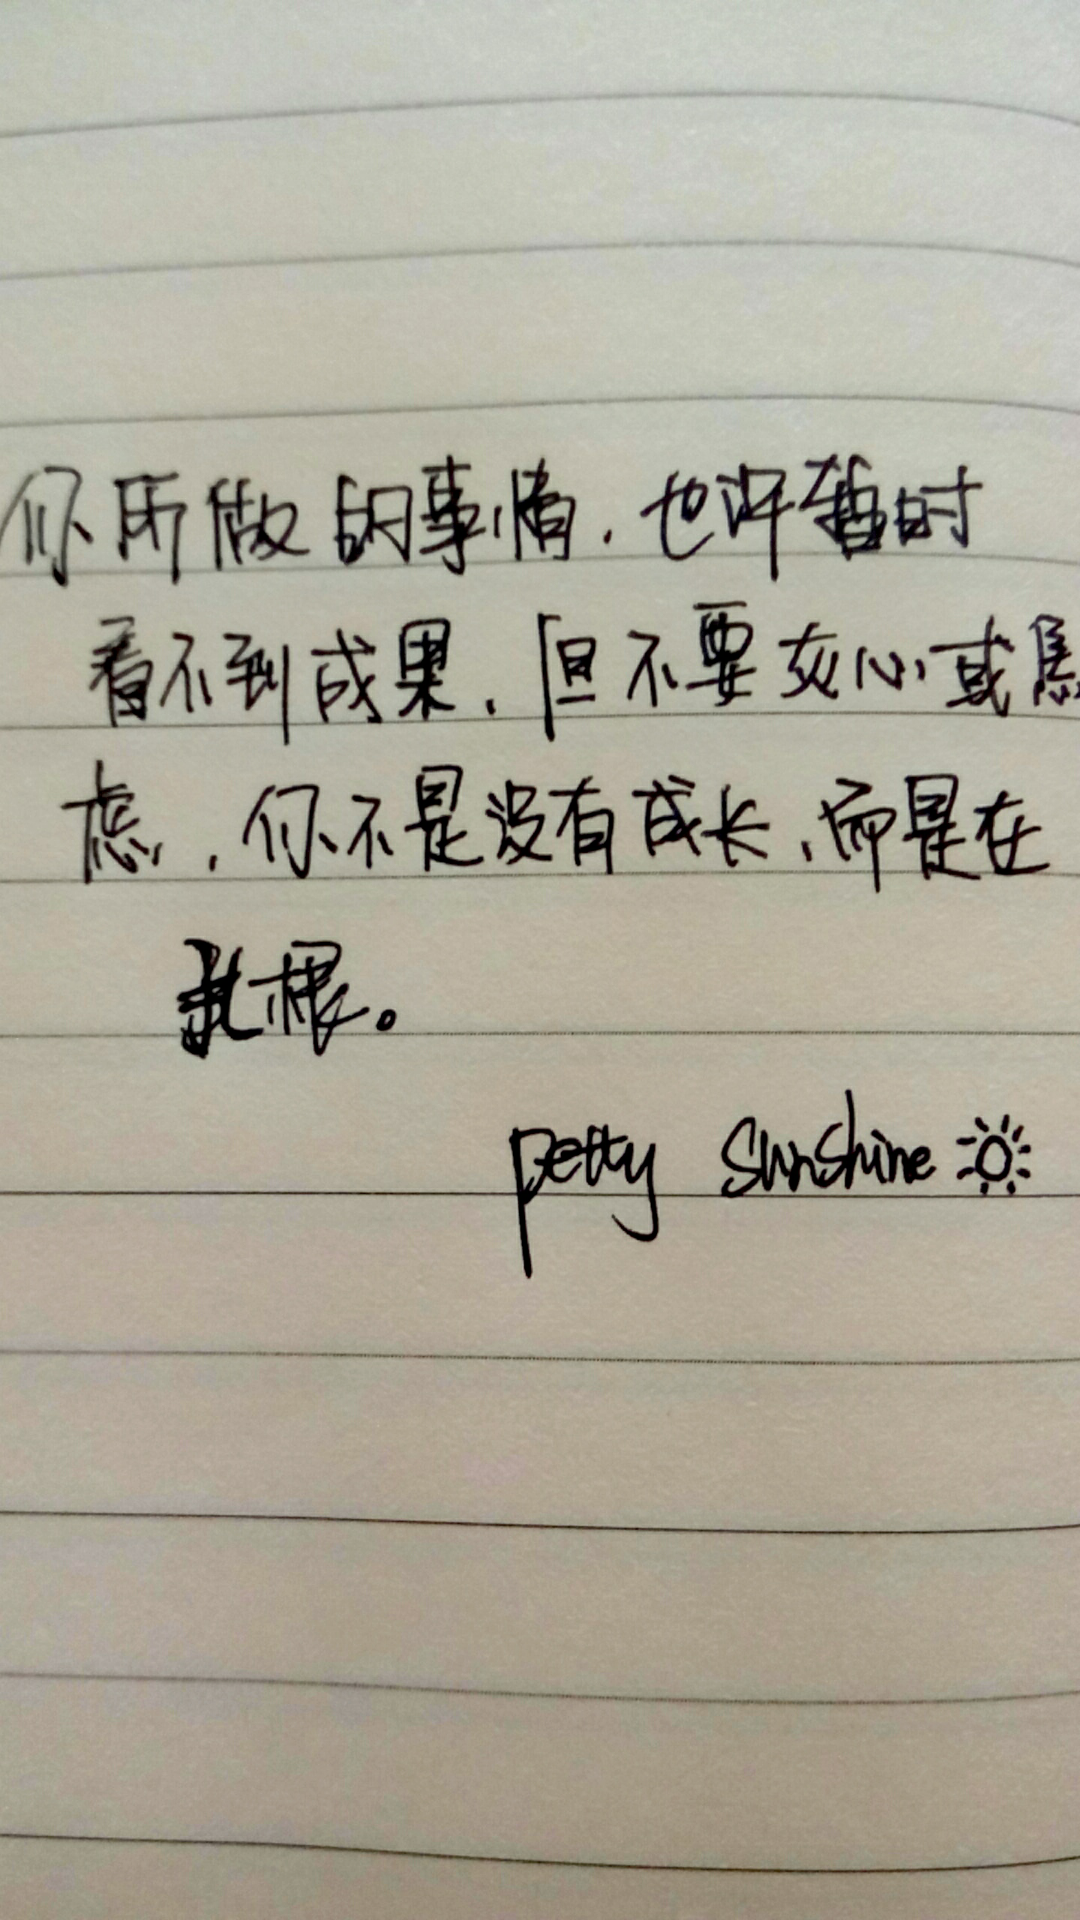 你所做的事情，也许暂时
看不到成果，但不要灰心或焦
虑，你不是没有成长，而是在
扎根。
petty sunshine